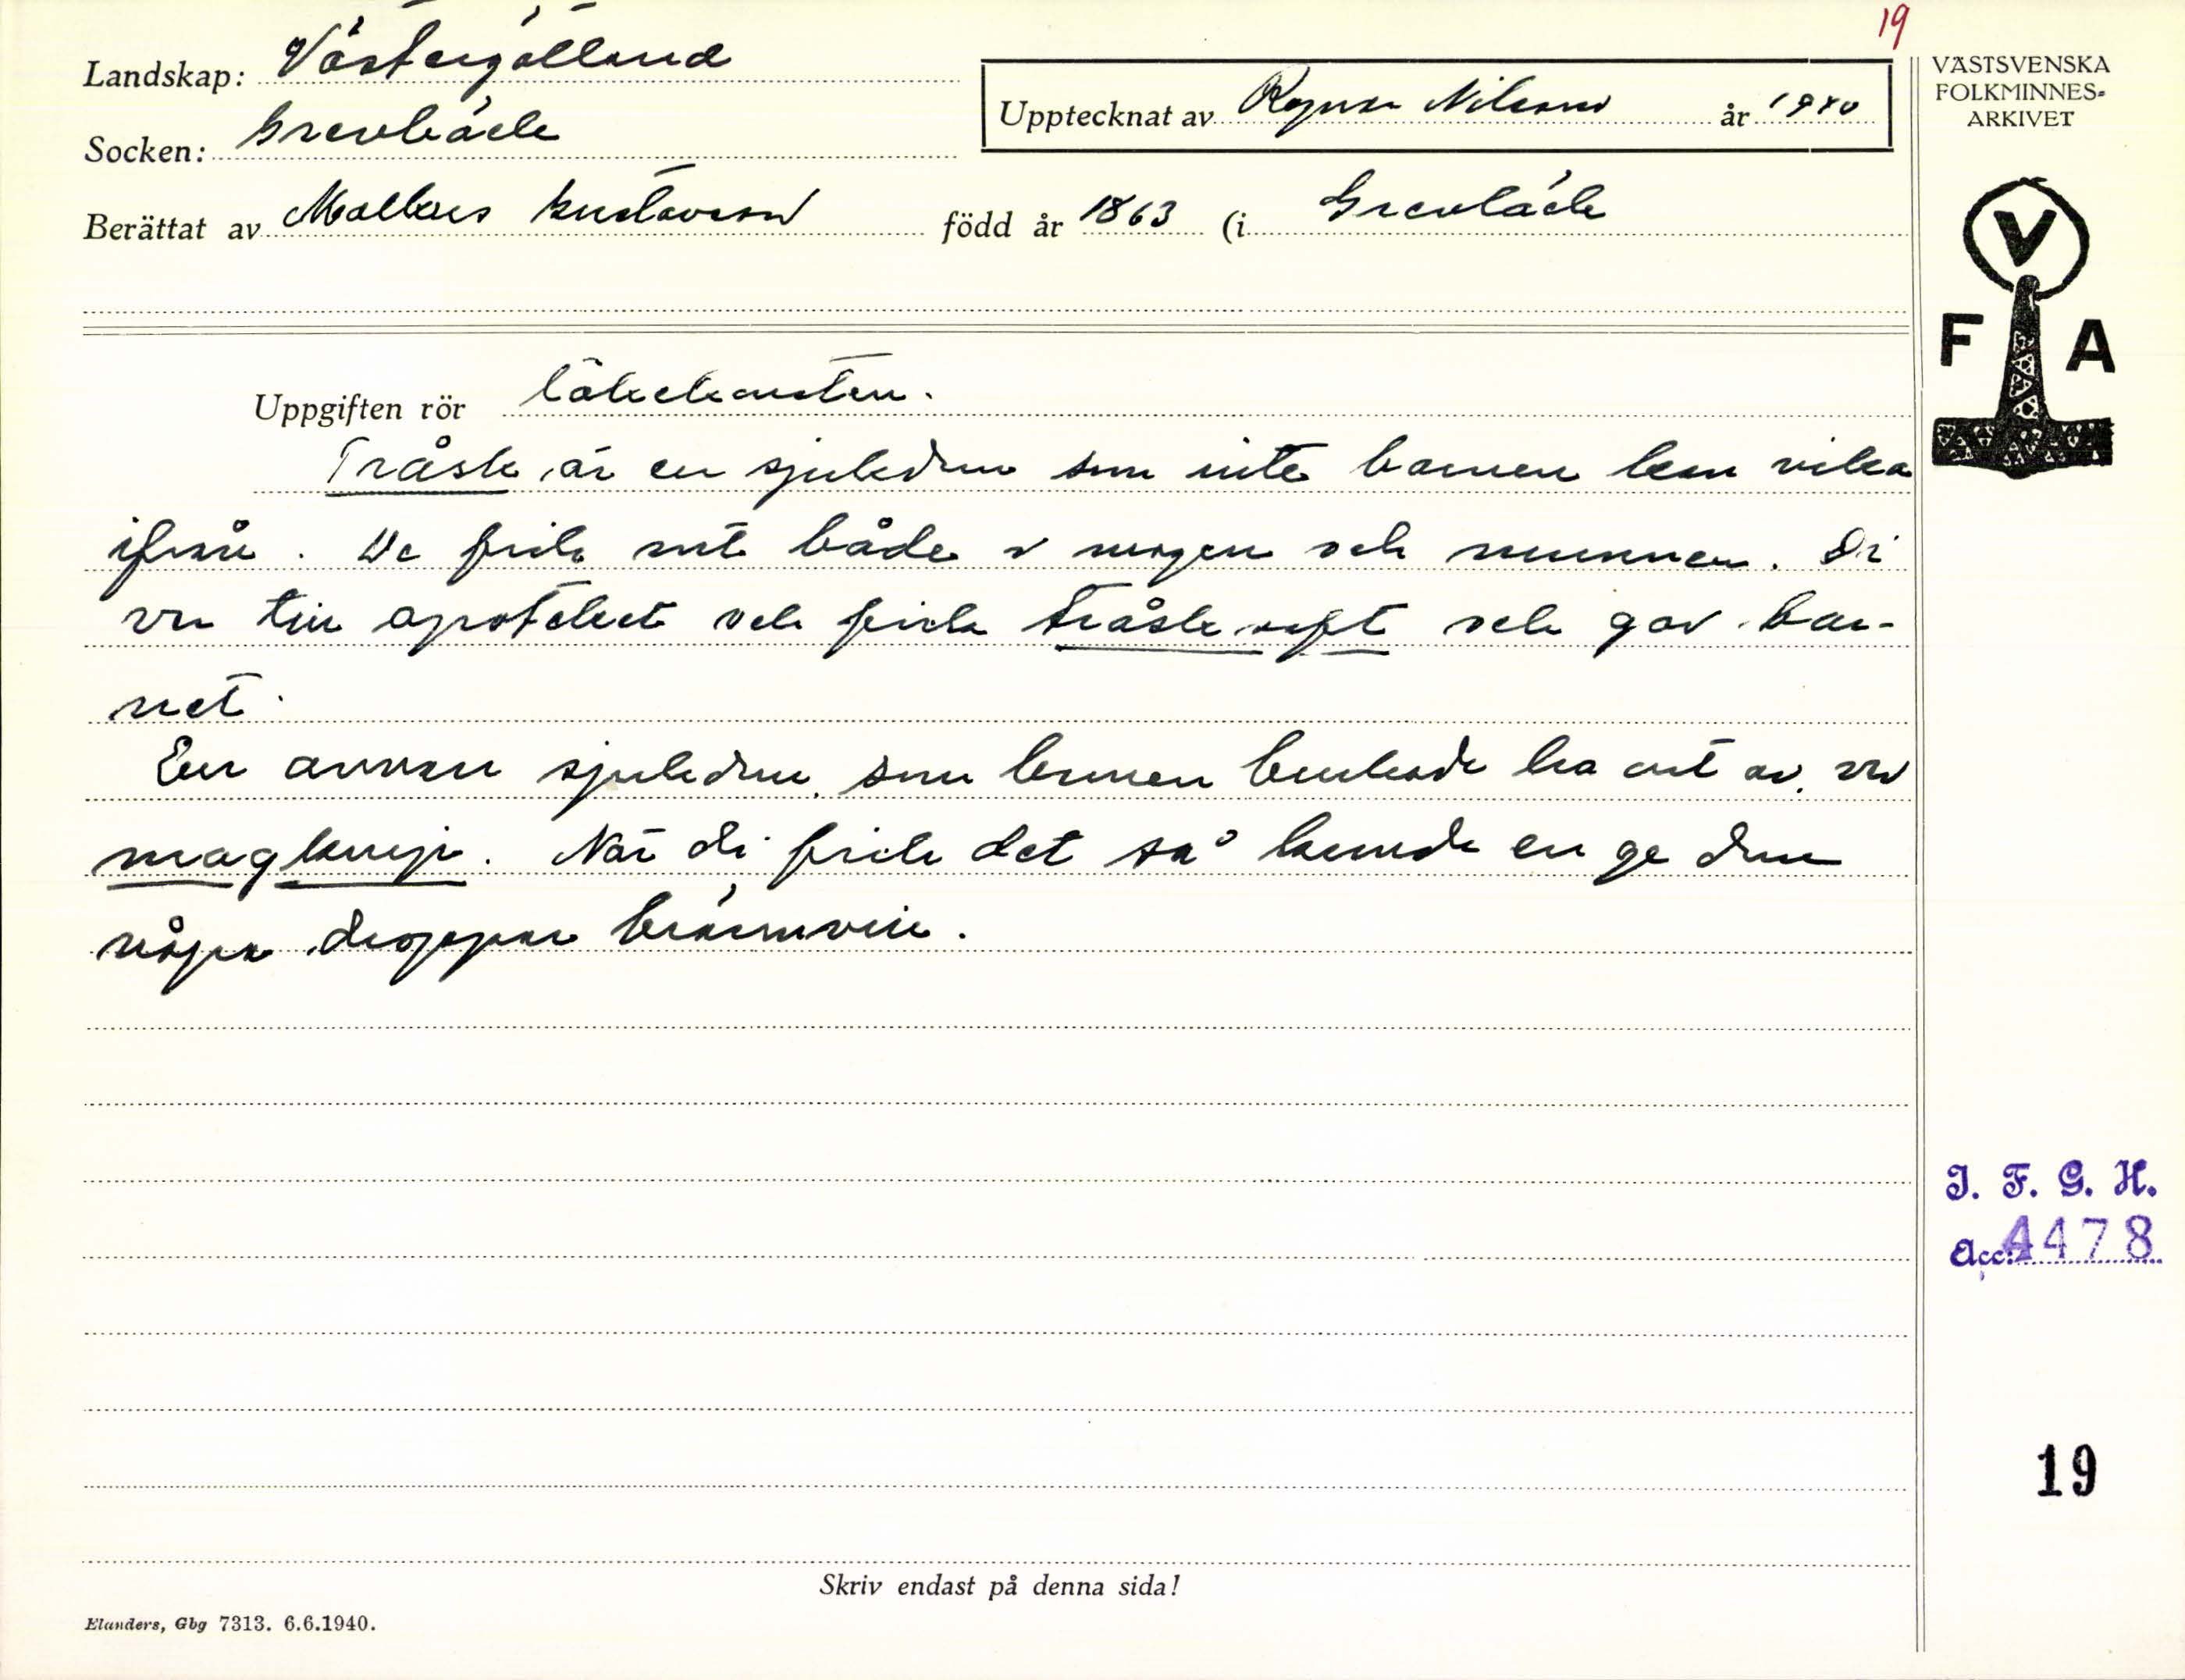 19
Landskap: Västergötland
Socken: Grevbäck
Upptecknat av Ragnar Nilsson år 1940
Berättat av Gustavsson född år 1863 (i Grevbäck
VÄSTSVENSKA
FOLKMINNES-
ARKIVET
V
F A
Uppgiften rör läkekonsten.
Tråsk är en sjukdom som inte barnen kan vika
ifrån. De fick ont både i magen och munnen. Di
va te apoteket och fick tråsksaft och gav bar-
net.
En annan sjukdom som barnen brukade ha ont av va
magknip. När di fick det så kunde en ge dom
några droppar brännvin.
I. F. G. H.
Acc: 4478
19
Skriv endast på denna sida!
Elanders, Gbg 7313. 6.6.1940.